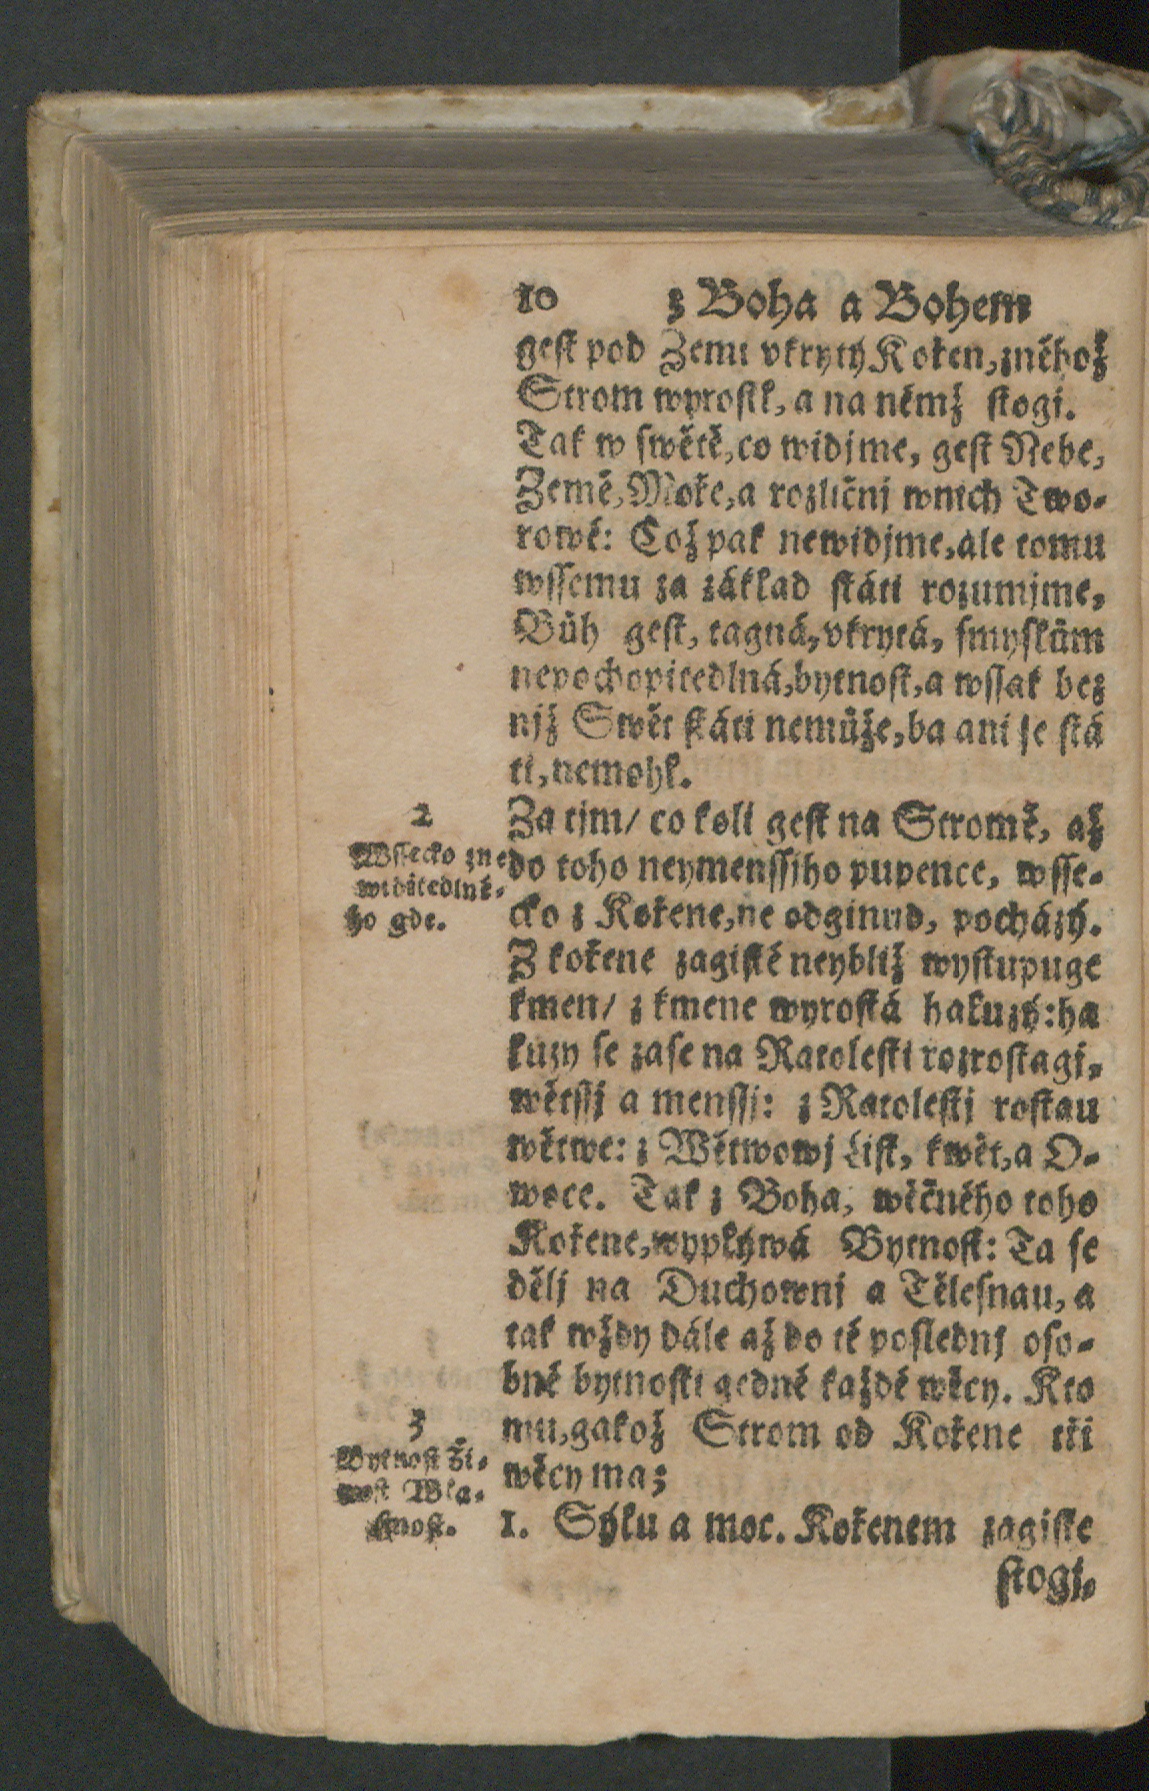 10 z Boha a Bohem
gest pod Zemi vkrytý Kořen, zněhož
Strom wyrostl, a na němž stogj.
Tak w swětě, co widjme, gest Nebe,
Země, Moře, a rozličnj wnich Two-
rowé: Což pak newidjme, ale tomu
wssemu za základ státi rozumjme,
Bůh gest, tagná, vkrytá, smyslům
nepochopitedlná, bytnost, a wssak bez
njž Swět státi nemůže, ba ani se stá
ti, nemohl.
2
Wssecko zne
widitedlné-
ho gde.
Za tjm/ co koli gest na Stromě, až
do toho neymenssjho pupence, wsse-
cko z Kořene, ne odginud, pocházý.
Z kořene zagisté neybliž wystupuge
kmen/ z kmene wyrostá haluzý: ha
luzy se zase na Ratolesti rozrostagj,
wětssj a menssj: z Ratolestj rostau
wětwe: z Wětwowj List, kwět, a O-
woce. Tak z Boha, wěčného toho
Kořene, wyplýwá Bytnost: Ta se
dělj na Duchownj a Tělesnau, a
tak wždy dále až do té poslednj oso-
bné bytnosti gedné každé wěcy. Kto
3
Bytnost Ži-
wost Wla-
stnost.
mu, gakož Strom od Kořene tři
wěcy ma;
1. Sýlu a moc. Kořenem zagiste
stogj,